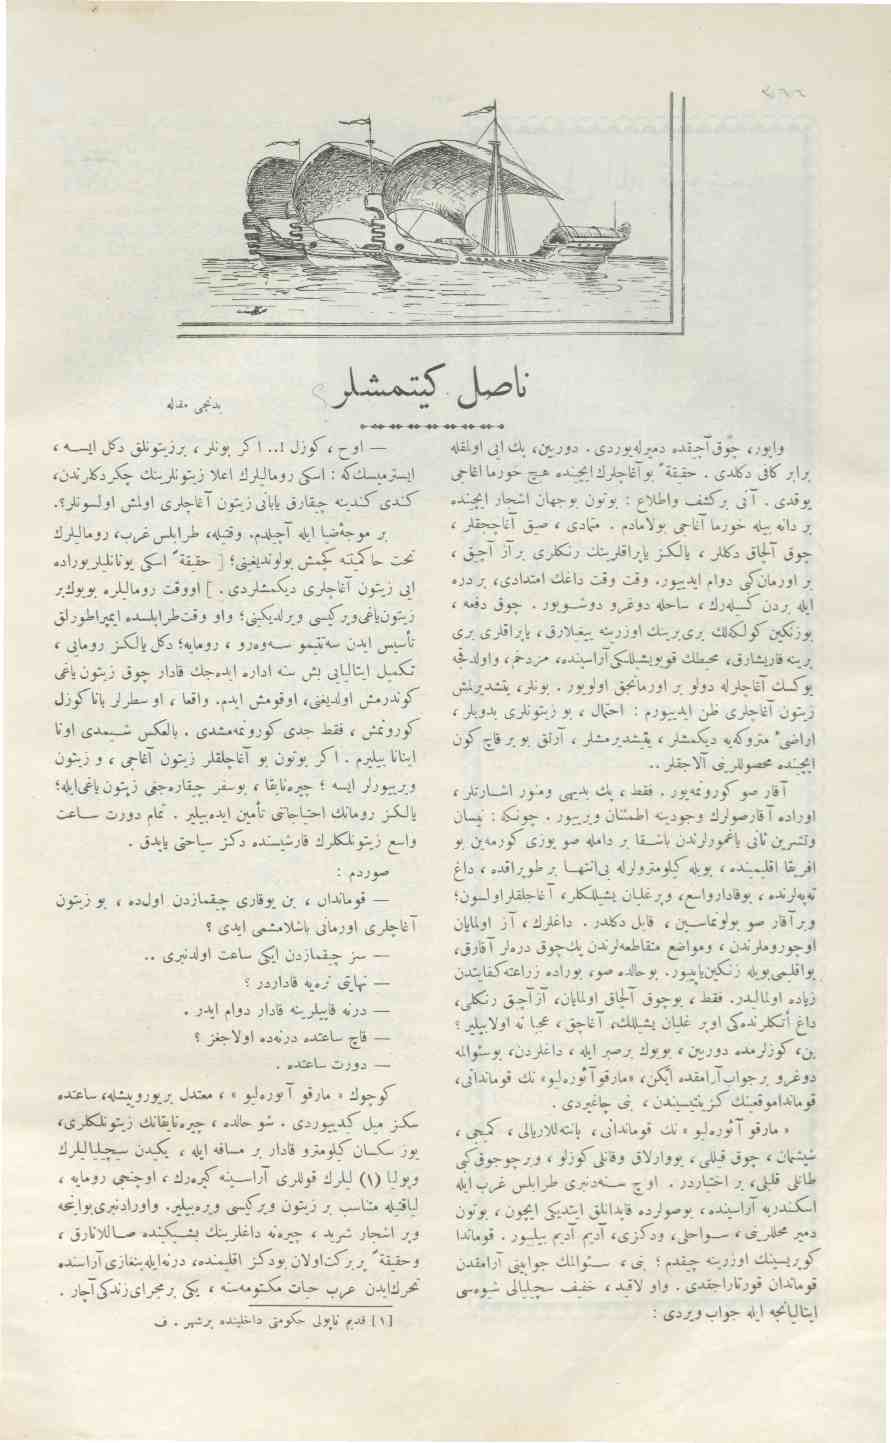 ناصل كیتمشلر
یدنجی مقاله
واپور، چوق آچیقده دمیرله‌یوردی. دوربین، پك ایی اولمقله
برابر كافی دكلدی. حقیقةً بو آغاجلرك ایچنده هیچ خورما اغاجی
یوقدی. آنی بر كشف واطلاع : بوتون بو جهان اشجار ایچنده
بر دانه بیله خورما آغاجی بولامادم. متمادی، صیق آغاججقلر،
چوق آلچاق دكللر، یالكز یاپراقلرینك رنكلری بر آز آچیق،
بر اورمان كبی دوام ایدییور. وقت وقت داغك امتدادی، بر دره
ایله بردن كسیله‌رك، ساحله دوغرو دوشویور. چوق دفعه،
بو زنكین كولكه‌لك بری برینك اوزرینه ییغیلارق، یاپراقلری بری
برینه قاریشارق، محیطك قویو یشیللكی آراسینده، مزدحم، واولدقجه
یوكسك آغاجلرله دولو بر اورمانجق اولویور. بونلر، یتشدیرلمش
زیتون آغاجلری ظن ایدییورم : احتمال، بو زیتونلری بدویلر،
اراضیٔ متروكه‌یه دیكمشلر، یتیشدیرمشلر، آرتق بو بر قاچ كون
ایچنده محصوللرینی آلاجقلر..
آقار صو كورونمه‌یور. فقط، پك بدیهی ومنور اشارتلر،
اوراده آقارصولرك وجودینه اطمئنان ویرییور. چونكه : نیسان
وتشرین ثانی یاغمورلرندن باشقا بر دامله صو یوزی كورمه‌ین بو
افریقا اقلیمینده، بویله كیلومترولرله بی‌انتها بر طوپراقده، داغ
تپه‌لرنده، بوقادار واسع، وپر غلیان یشیللكلر، آغاجلقلر اولسون؛
وبر آقار صو بولونماسین، قابل دكلدر. داغلرك، آز اولمایان
اوچوروملرندن، ومواضع متقاطعه‌لرندن پك چوق دره‌لر آقارق،
بو اقلیمی بویله زنكین یاپییور. بو حالده صو، بوراده زراعته كفایتدن
زیاده اولمالیدر. فقط، بو چوق آلچاق اولمایان، آز آچیق رنكلی،
داغ أتكلرنده‌كی او پر غلیان یشیللك، آغاجق، عجبا نه اولابیلیر؟
بن، كوزلرمده دوربین، بویوك بر صبر ایله، داغلردن، بو سئوالمه
دوغرو بر جواب آرامقده ایكن، «مارقو آئوره‌لیو» نك قوماندانی،
قوماندا موقعینك كزینتیسیندن، بنی چاغیردی.
« مارقو آئوره‌لیو » نك قوماندانی، پانته‌للاریالی، كمیجی،
شیشمان، چوق قیللی، یووارلاق وقانلی كوزلو، وبر چوجوق كبی
طاتلی قلبلی، بر اختیاردر. اوچ سنه‌دنبری طرابلس غرب ایله
اسكندریه آراسینده، بو صولرده قاپدانلق ایتدیكی ایچون، بوتون
دمیر محللرینی، سواحلی، ودكزی، آدیم آدیم بیلییور. قوماندا
كوپریسینك اوزرینه چیقدم؛ بنی، سئوالمك جوابینی آرامقدن
قوماندان قورتاراجقدی. واو لاقید، خفیف سچیلیالی شیوه‌سی
ایتالیانجه ایله جواب ویردی :
— اوح، كوزل !.. اكر بونلر، بر زیتونلق دكل ایسه،
ایسترمیسك كه : اسكی رومالیلرك اعلا زیتونلرینك چكردكلرندن،
كندی كندینه چیقارق یابانی زیتون آغاجلری اولمش اولسونلر؟.
بر موجهٔ ضیا ایله آچیلدم. وقتیله، طرابلس غرب، رومالیلرك
تحت حاكمیتنه كچمش بولوندیغینی؛ [ حقیقةً اسكی یونانلیلر بوراده
ایی زیتون آغاجلری دیكمشلردی. ] او وقت رومالیلره بویوك بر
زیتون یاغی ویركیسی ویرلدیكینی؛ واو وقت طرابلسده ایمپراطورلق
تأسیس ایدن سه‌پتیمو سه‌وه‌رو، رومایه؛ دكل یالكز رومایی،
تكمیل ایتالیایی بش سنه اداره ایده‌جك قادار چوق زیتون یاغی
كوندرمش اولدیغنی، اوقومش ایدم. واقعا، او سطرلر بانا كوزل
كورونمش، فقط جدی كورونمه‌مشدی. بالعكس شیمدی اونا
اینانا بیلیرم. اكر بوتون بو آغاجلقلر زیتون آغاجی، و زیتون
ویرییورلر ایسه؛ چیره‌نایقا، بوسفر چیقاره‌جغی زیتون یاغی ایله؛
یالكز رومانك احتیاجاتنی تأمین ایده‌بیلیر. تمام دورت ساعت
واسع زیتونلكلرك قارشیسنده دكز سیاحتی یاپدق.
صوردم :
— قوماندان، بن یوقاری چیقمازدن اولده، بو زیتون
آغاجلری اورمانی باشلامشمی ایدی ؟
— سز چیقمازدن ایكی ساعت اولدنبری ..
— نهایتی نره‌یه قاداردر ؟
— درنه قاپیلرینه قادار دوام ایدر.
— قاچ ساعتده درنه‌ده اولاجغز ؟
— دورت ساعتده.
كوچوك « مارقو آئوره‌لیو »، معتدل بر یورویشله، ساعتده
سكز میل كیدییوردی. شو حالده، چیره‌نایقانك زیتونلكلری،
یوز سكسان كیلومترو قادار بر مسافه ایله، یكیدن سیچیلیالیلرك
وپولیا (١) لیلرك قوللری آراسینه كیره‌رك، اوچنجی رومایه،
لیاقتیله متناسب بر زیتون ویركیسی ویره‌بیلیر. واورادنبری بو اینجه
وپر اشجار شرید، چیره‌نه داغلرینك بشیكینده صاللانارق،
وحقیقةً پر بركت اولان بو دكز اقلیمنده، درنه ایله بنغازی آراسنده
تحرك ایدن عرب حیات مكتومه‌سنه، یكی بر مجرای زندكی آچار.
[١] قدیم ناپولی حكومتی داخلینده بر شهر. ف